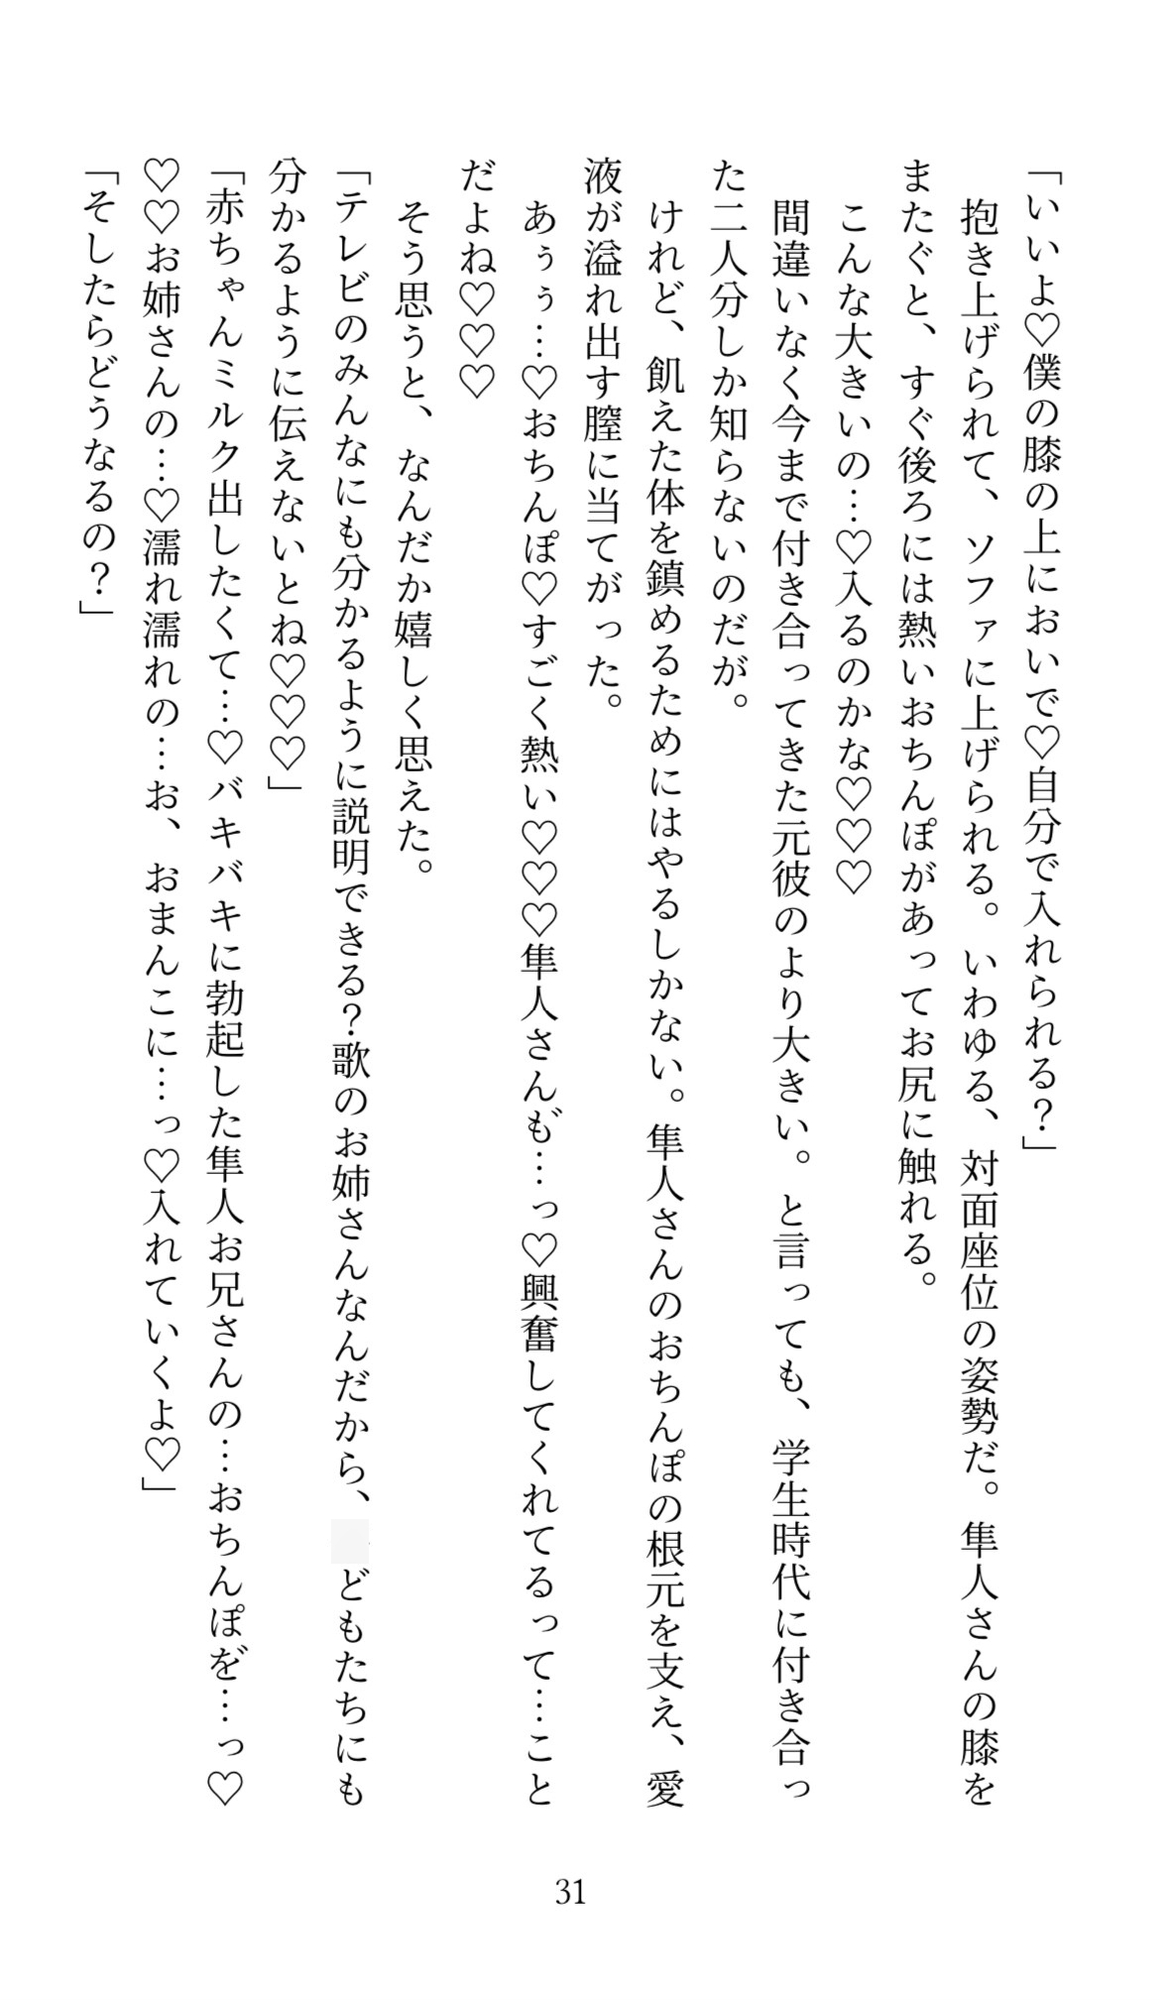 「いいよ♡僕の膝の上においで♡自分で入れられる？」
抱き上げられて、ソファに上げられる。いわゆる、対面座位の姿勢だ。隼人さんの膝を
またぐと、すぐ後ろには熱いおちんぽがあってお尻に触れる。
こんな大きいの…♡入るのかな♡♡♡
間違いなく今まで付き合ってきた元彼のより大きい。と言っても、学生時代に付き合っ
た二人分しか知らないのだが。
けれど、飢えた体を鎮めるためにはやるしかない。隼人さんのおちんぽの根元を支え、愛
液が溢れ出す膣に当てがった。
あぅぅ…♡おちんぽ♡すごく熱い♡♡♡隼人さんも゛…っ♡興奮してくれてるって…こと
だよね♡♡♡
そう思うと、なんだか嬉しく思えた。
「テレビのみんなにも分かるように説明できる？歌のお姉さんなんだから、どもたちにも
分かるように伝えないとね♡♡♡」
「赤ちゃんミルク出したくて…♡バキバキに勃起した隼人お兄さんの…おちんぽを゛…っ♡
♡♡お姉さんの…♡濡れ濡れの…お、おまんこに…っ♡入れていくよ♡」
「そしたらどうなるの？」
31